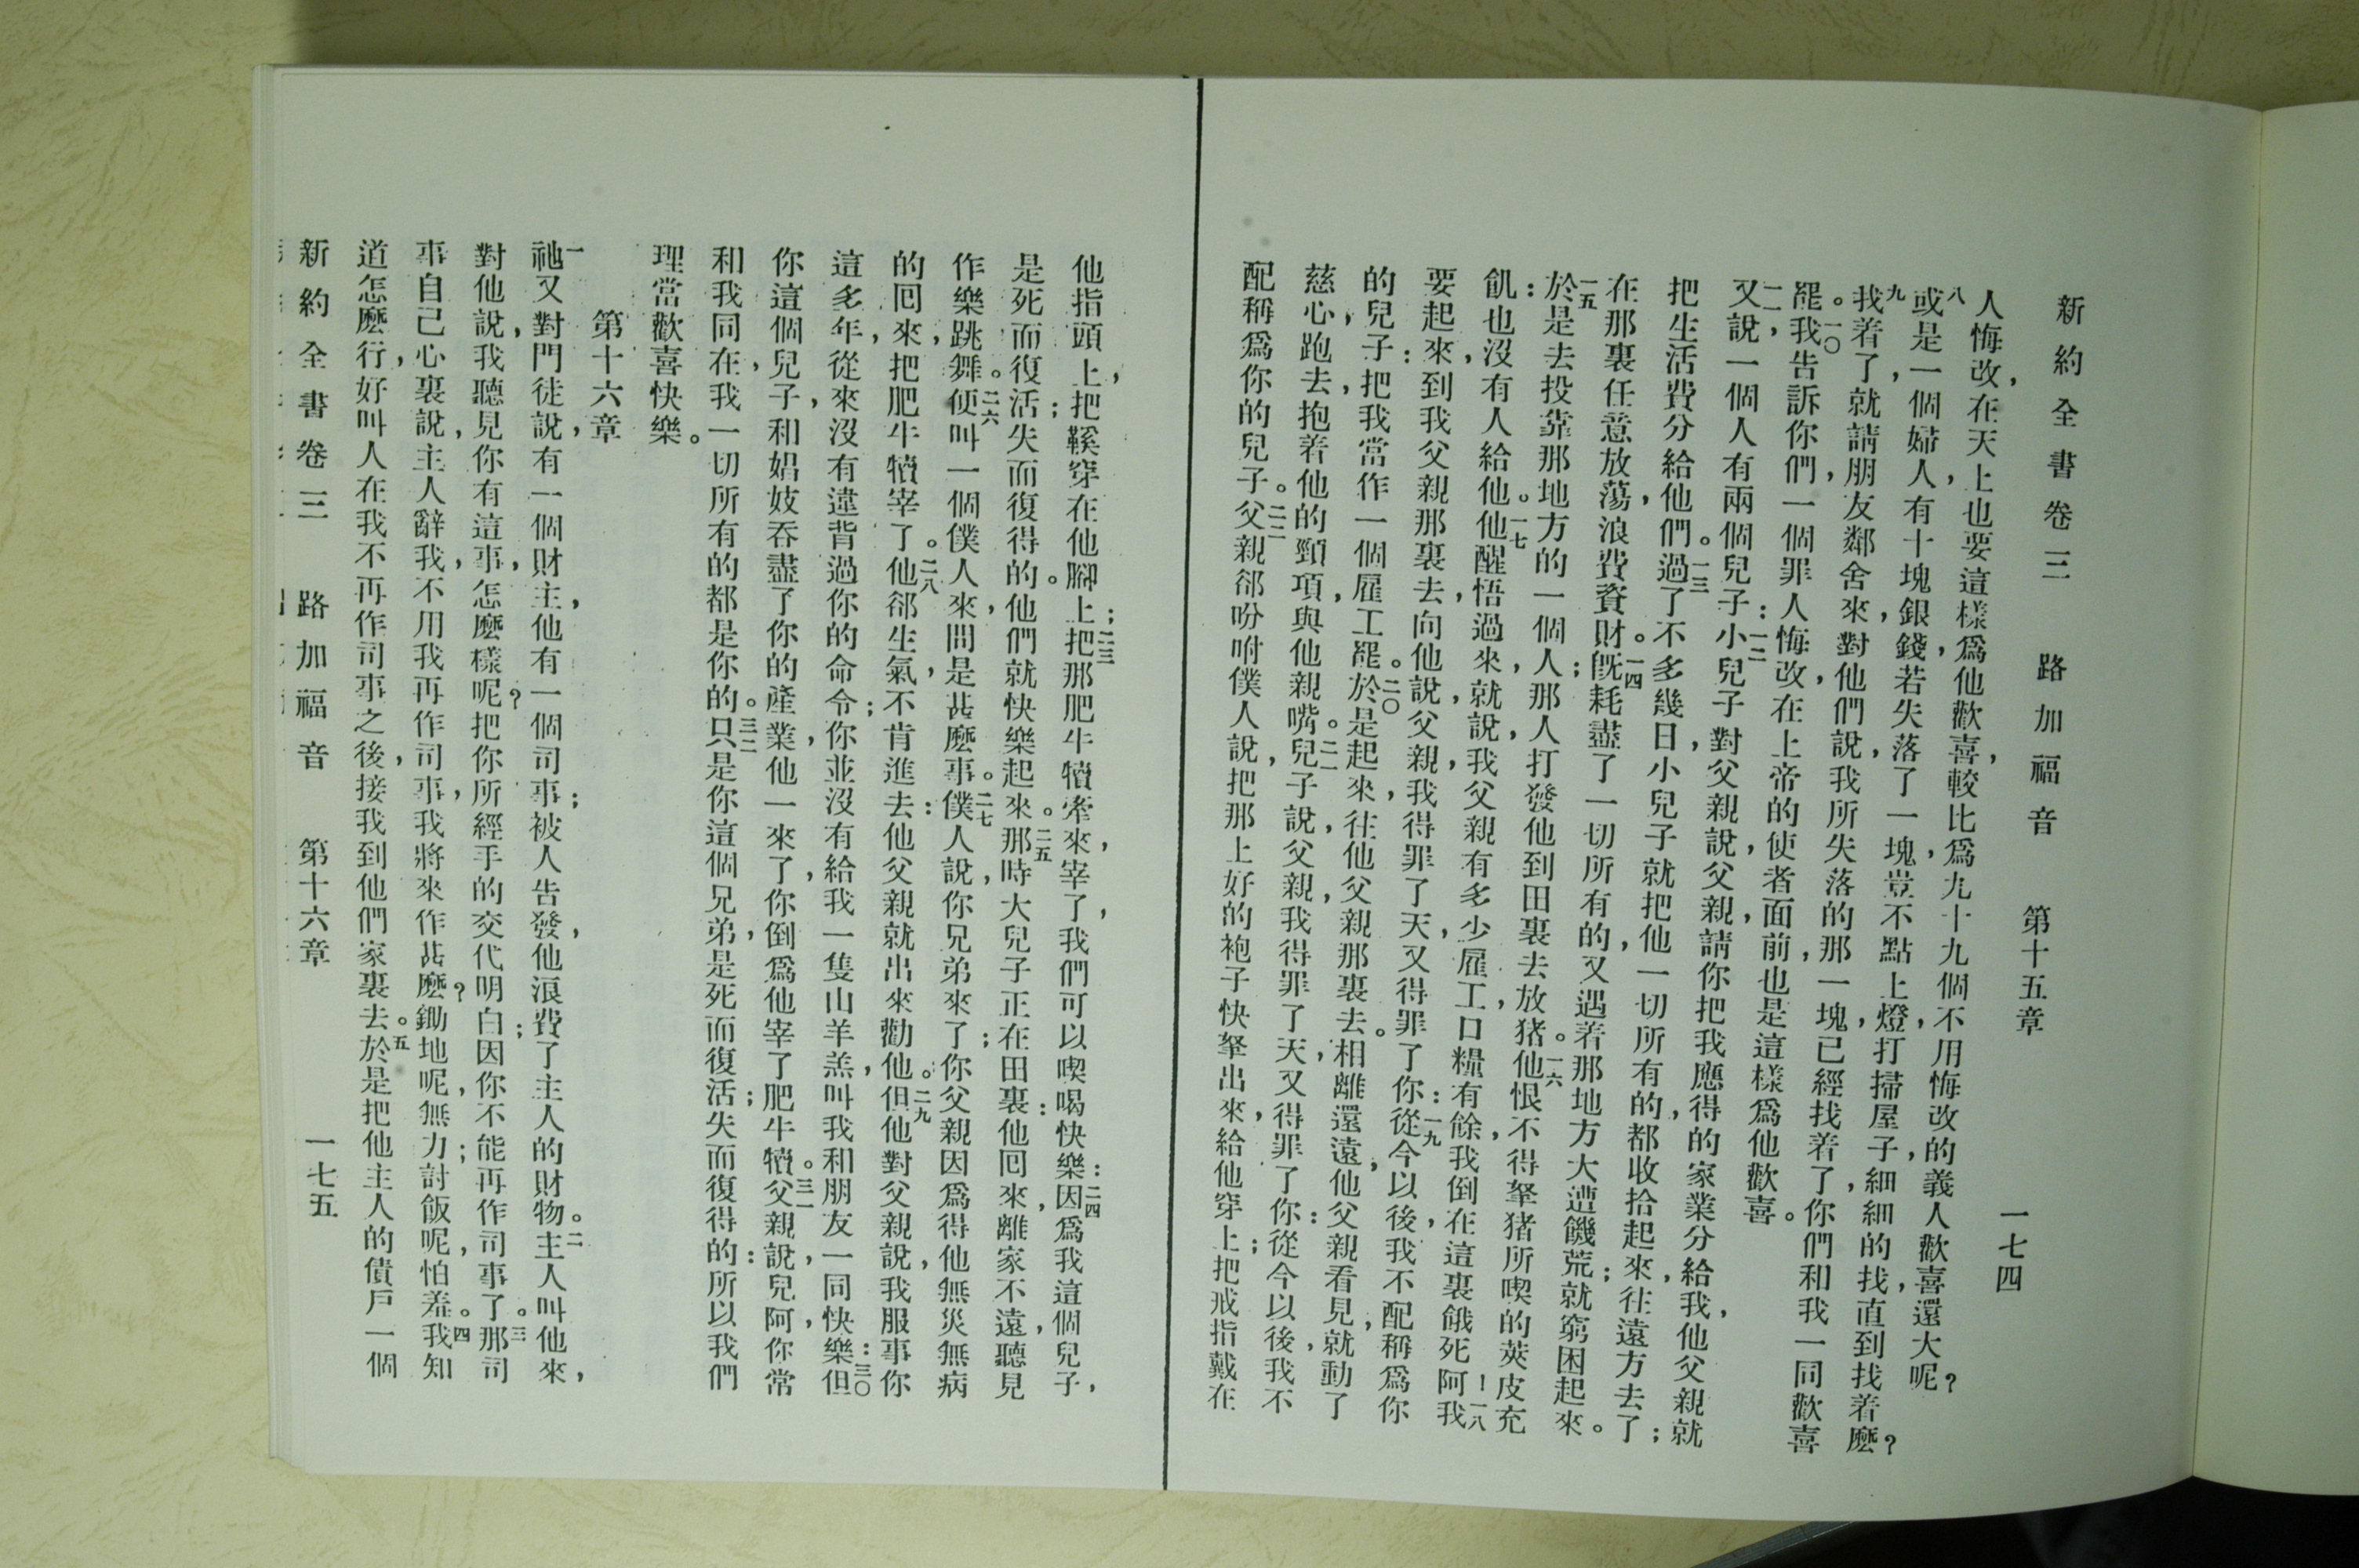 新約全書卷三 路加福音 第十五章 一七四
人悔改，在天上也要這樣爲他歡喜，較比爲九十九個不用悔改的義人歡喜還大呢？
八或是一個婦人，有十塊銀錢，若失落了一塊，豈不點上燈，打掃屋子，細細的找，直到找着麼？
九找着了，就請朋友鄰舍來，對他們說，我所失落的那一塊，已經找着了，你們和我一同歡喜
罷。一〇我告訴你們，一個罪人悔改，在上帝的使者面前，也是這樣爲他歡喜。
一一又說，一個人有兩個兒子：一二小兒子對父親說，父親，請你把我應得的家業分給我，他父親就
把生活費分給他們。一三過了不多幾日，小兒子就把他一切所有的，都收拾起來，往遠方去了；
在那裏任意放蕩，浪費資財。一四旣耗盡了一切所有的，又遇着那地方大遭饑荒；就窮困起來。
一五於是去投靠那地方的一個人；那人打發他到田裏去放猪。一六他恨不得拏猪所喫的莢皮充
飢：也沒有人給他。一七他醒悟過來，就說，我父親有多少雇工，口糧有餘，我倒在這裏餓死阿！一八我
要起來，到我父親那裏去，向他說，父親，我得罪了天，又得罪了你：一九從今以後，我不配稱爲你
的兒子：把我當作一個雇工罷。二〇於是起來，往他父親那裏去。相離還遠，他父親看見，就動了
慈心，跑去，抱着他的頸項，與他親嘴。二一兒子說，父親，我得罪了天，又得罪了你：從今以後，我不
配稱爲你的兒子。二二父親郤吩咐僕人說，把那上好的袍子快拏出來，給他穿上；把戒指戴在
他指頭上，把鞵穿在他腳上；二三把那肥牛犢牽來，宰了，我們可以喫喝快樂：二四因爲我這個兒子，
是死而復活；失而復得的。他們就快樂起來。二五那時大兒子正在田裏：他囘來，離家不遠，聽見
作樂跳舞。二六便叫一個僕人來，問是甚麼事。二七僕人說，你兄弟來了；你父親因爲得他無災無病
的囘來，把肥牛犢宰了。二八他郤生氣，不肯進去：他父親就出來勸他。二九但他對父親說，我服事你
這多年，從來沒有違背過你的命令；你並沒有給我一隻山羊羔，叫我和朋友一同快樂：三〇但
你這個兒子，和娼妓吞盡了你的產業，他一來了，你倒爲他宰了肥牛犢。三一父親說，兒阿，你常
和我同在，我一切所有的都是你的。三二只是你這個兄弟，是死而復活；失而復得的：所以我們
理當歡喜快樂。
第十六章
一祂又對門徒說，有一個財主，他有一個司事；被人告發，他浪費了主人的財物。二主人叫他來，
對他說，我聽見你有這事，怎麼樣呢？把你所經手的交代明白；因你不能再作司事了。三那司
事自己心裏說，主人辭我，不用我再作司事，我將來作甚麼？鋤地呢，無力；討飯呢，怕羞。四我知
道怎麼行，好叫人在我不再作司事之後，接我到他們家裏去。五於是把他主人的債戶一個
新約全書卷三 路加福音 第十六章 一七五